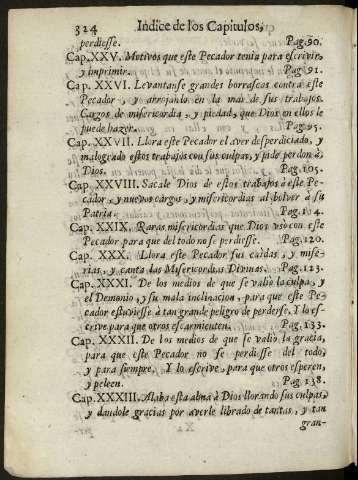 324 Indice de los Capitulos,
perdiesse. Pag.90.
Cap. XXV. Motivos que este Pecador tenia para escrivir,
y imprimir. Pag.91.
Cap. XXVI. Levantanse grandes borrascas contra este
Pecador, y arrojanlo en la mar de sus trabajos.
Cargos de misericordia, y piedad, que Dios en ellos le
puede hazer. Pag.95.
Cap. XXVII. Llora este Pecador el aver desperdiciado, y
malogrado estos trabajos con sus culpas, y pide perdon à
Dios. Pag.105.
Cap. XXVIII. Sacale Dios de estos trabajos à este Pe-
cador, y nuevos cargos, y misericordias al bolver à su
Patria. Pag.114.
Cap. XXIX. Raras misericordias que Dios usò con este
Pecador para que del todo no se perdiesse. Pag.120.
Cap. XXX. Llora este Pecador sus caidas, y mise-
rias, y canta las Misericordias Divinas. Pag.123.
Cap. XXXI. De los medios de que se valio la culpa, y
el Demonio, y su mala inclinacion, para que este Pe-
cador estuviesse à tan grande peligro de perderse. Y lo es-
crive para que otros escarmienten. Pag.133.
Cap. XXXII. De los medios de que se valiò la gracia,
para que este Pecador no se perdiesse del todo,
y para siempre. Y lo escrive, para que otros esperen,
y peleen. Pag.138.
Cap. XXXIII. Alaba esta alma à Dios llorando sus culpas,
y dandole gracias por averle librado de tantas, y tan
gran-